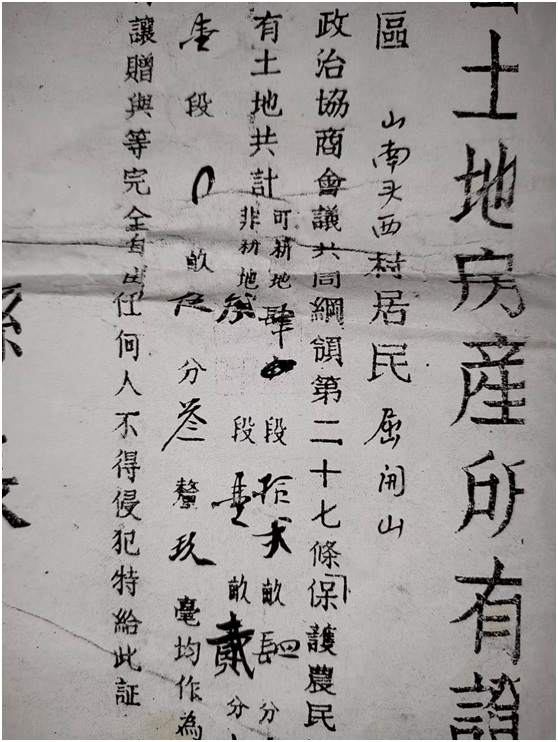 土地房產所有證
區 山南头西村居民 屈開山
政治協商會議共同綱領第二十七條保護農民
有土地共計 可耕地肆 段拾 畝 分
非耕地 段壹畝貳分
壹段 畝伍分叁釐玖毫均作為
讓贈與等完全自由任何人不得侵犯特給此証